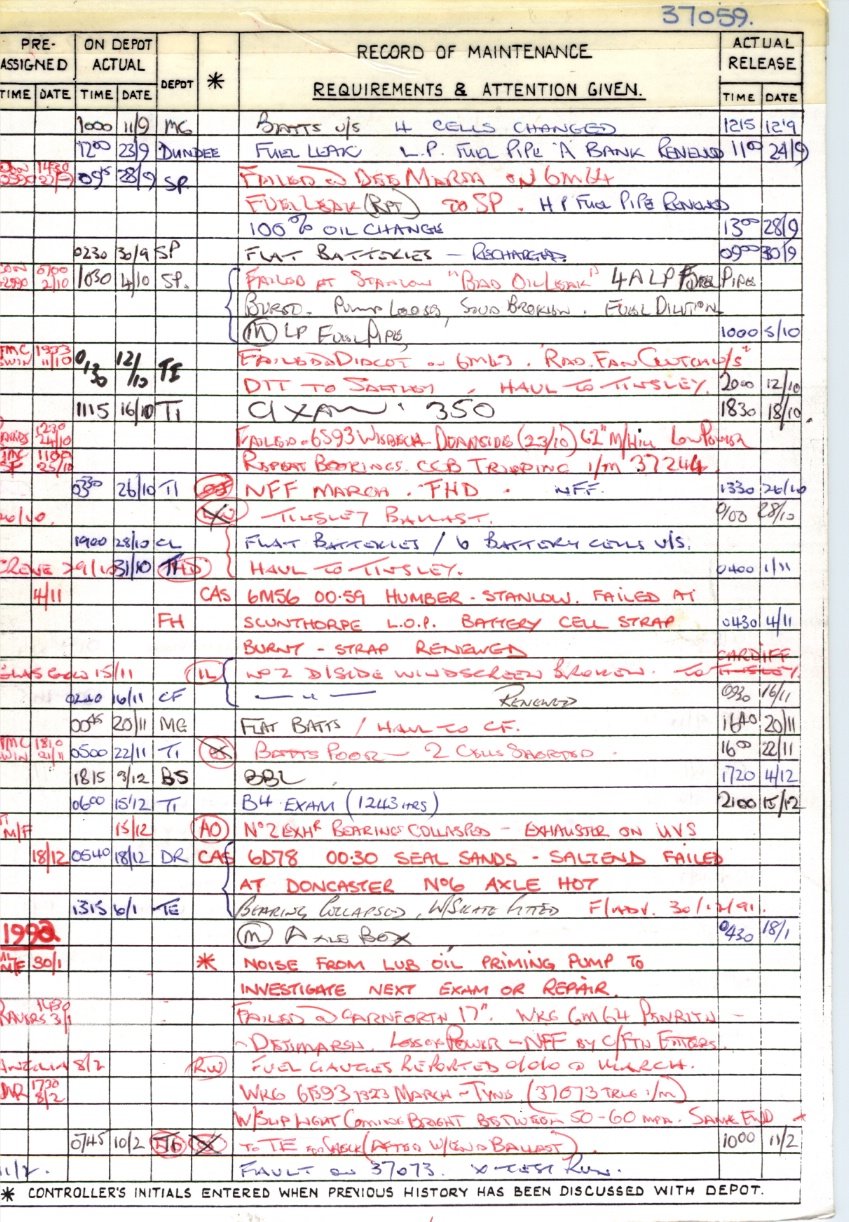 37059.
PRE-ASSIGNED ON DEPOT ACTUAL DEPOT * RECORD OF MAINTENANCE REQUIREMENTS & ATTENTION GIVEN. ACTUAL RELEASE
TIME DATE TIME DATE TIME DATE
1000 11/9 MG BATTS U/S 4 CELLS CHANGED 1215 12/9
1200 23/9 DUNDEE FUEL LEAK L.P. FUEL PIPE 'A' BANK RENEWED 1100 24/9
0945 28/9 SP. FAILED @ DEE MARSH ON 6M64
FUEL LEAK (RPT) TO SP. H P FUEL PIPE RENEWED
100% OIL CHANGE 1300 28/9
0230 30/9 SP FLAT BATTERIES - RECHARGED. 0900 30/9
0700 2/10 1030 4/10 SP. FAILED AT STANLOW "BAD OIL LEAK" 4A LP FUEL PIPE
BURST. PUMP LOOSE, STUD BROKEN. FUEL DILUTION
(M) LP FUEL PIPE, 1000 5/10
11/10 0130 12/10 TE FAILED @ DIDCOT ON 6M63. "RAD. FAN CLUTCH U/S"
DTT TO SALTLEY, HAUL TO TINSLEY. 2000 12/10
1115 16/10 TI EXAM 350 1830 18/10
1230 24/10 FAILED 6S93 WISBECH - DEANSIDE (23/10) 62" M/HILL LOW POWER
1100 25/10 REPEAT BOOKINGS. CCB TRIPPING I/M 37244.
0330 26/10 TI NFF MARCH. FHD. NFF. 1330 26/10
TINSLEY BALLAST. 28/10
1900 28/10 CL FLAT BATTERIES / 6 BATTERY CELLS U/S.
CREWE 29/10 31/10 THD HAUL TO TINSLEY. 0400 1/11
4/11 CAS 6M56 00.59 HUMBER - STANLOW. FAILED AT
FH SCUNTHORPE L.O.P. BATTERY CELL STRAP 0430 4/11
BURNT - STRAP RENEWED CARDIFF
GLASGOW 15/11 IL No 2 D/SIDE WINDSCREEN BROKEN. TO TINSLEY.
0240 16/11 CF — " — RENEWED 0930 16/11
0045 20/11 MG FLAT BATTS / HAUL TO CF. 1640 20/11
1810 21/11 0500 22/11 TI BATTS POOR - 2 CELLS SHORTED. 1600 22/11
1815 3/12 BS BBL 1720 4/12
0600 15/12 TI B4 EXAM (1243 HRS) 2100 15/12
M/F 15/12 AO No 2 EXHR BEARING COLLAPSED - EXHAUSTER ON UVS
18/12 0540 18/12 DR CAS 6D78 00.30 SEAL SANDS - SALTEND FAILED
AT DONCASTER No6 AXLE HOT
1315 6/1 TE BEARING COLLAPSED, W/SKATE FITTED F/ADV. 30/12/91.
1992 (M) AXLE BOX 0430 18/1
M/F 30/1 * NOISE FROM LUB OIL PRIMING PUMP TO
INVESTIGATE NEXT EXAM OR REPAIR.
1430 3/1 FAILED @ CARNFORTH 17". WKG 6M64 PENRITH -
- DEE MARSH. LOSS OF POWER - NFF BY C/FTN FITTERS.
8/2 RW FUEL GAUGES REPORTED @ MARCH.
1730 8/2 WKG 6S93 1323 MARCH - TYNE (37073 TRLG I/M)
W/SLIP LIGHT COMING BRIGHT BETWEEN 50-60 MPH. SAME END *
0745 10/2 TO TE (AFTER W/END BALLAST). 1000 11/2
11/2. FAULT ON 37073. X TEST RUN.
* CONTROLLER'S INITIALS ENTERED WHEN PREVIOUS HISTORY HAS BEEN DISCUSSED WITH DEPOT.